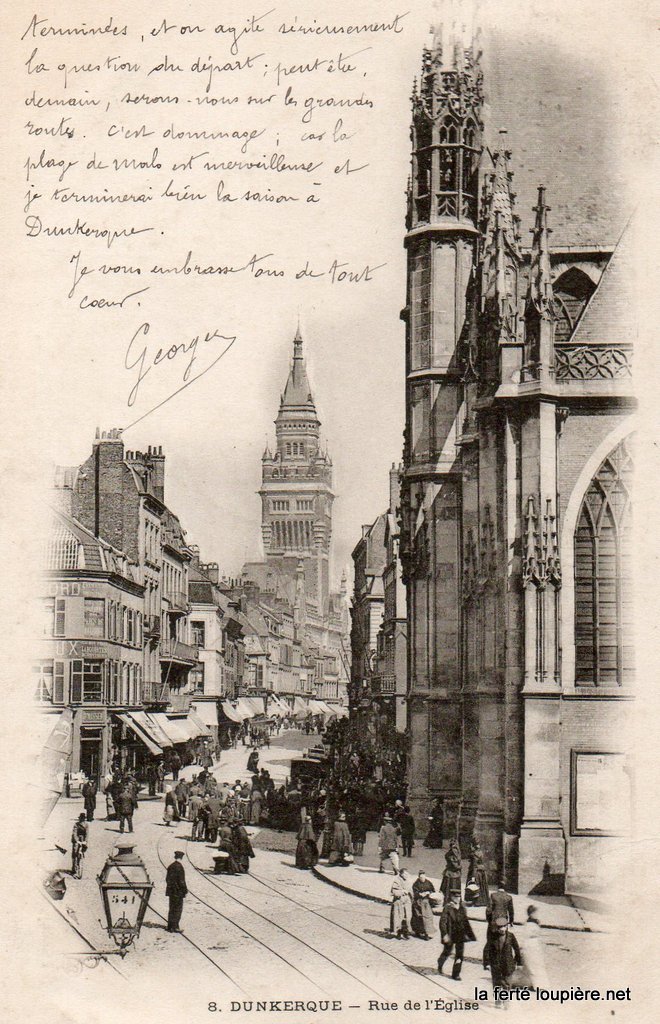 terminées, et on agite sérieusement
la question du départ ; peut être,
demain, serons-nous sur les grandes
routes. C'est dommage ; car la
plage de malo est merveilleuse et
je terminerai bien la saison à
Dunkerque.
Je vous embrasse tous de tout
coeur.
Georges
541
8. DUNKERQUE — Rue de l'Église
la ferté loupière.net